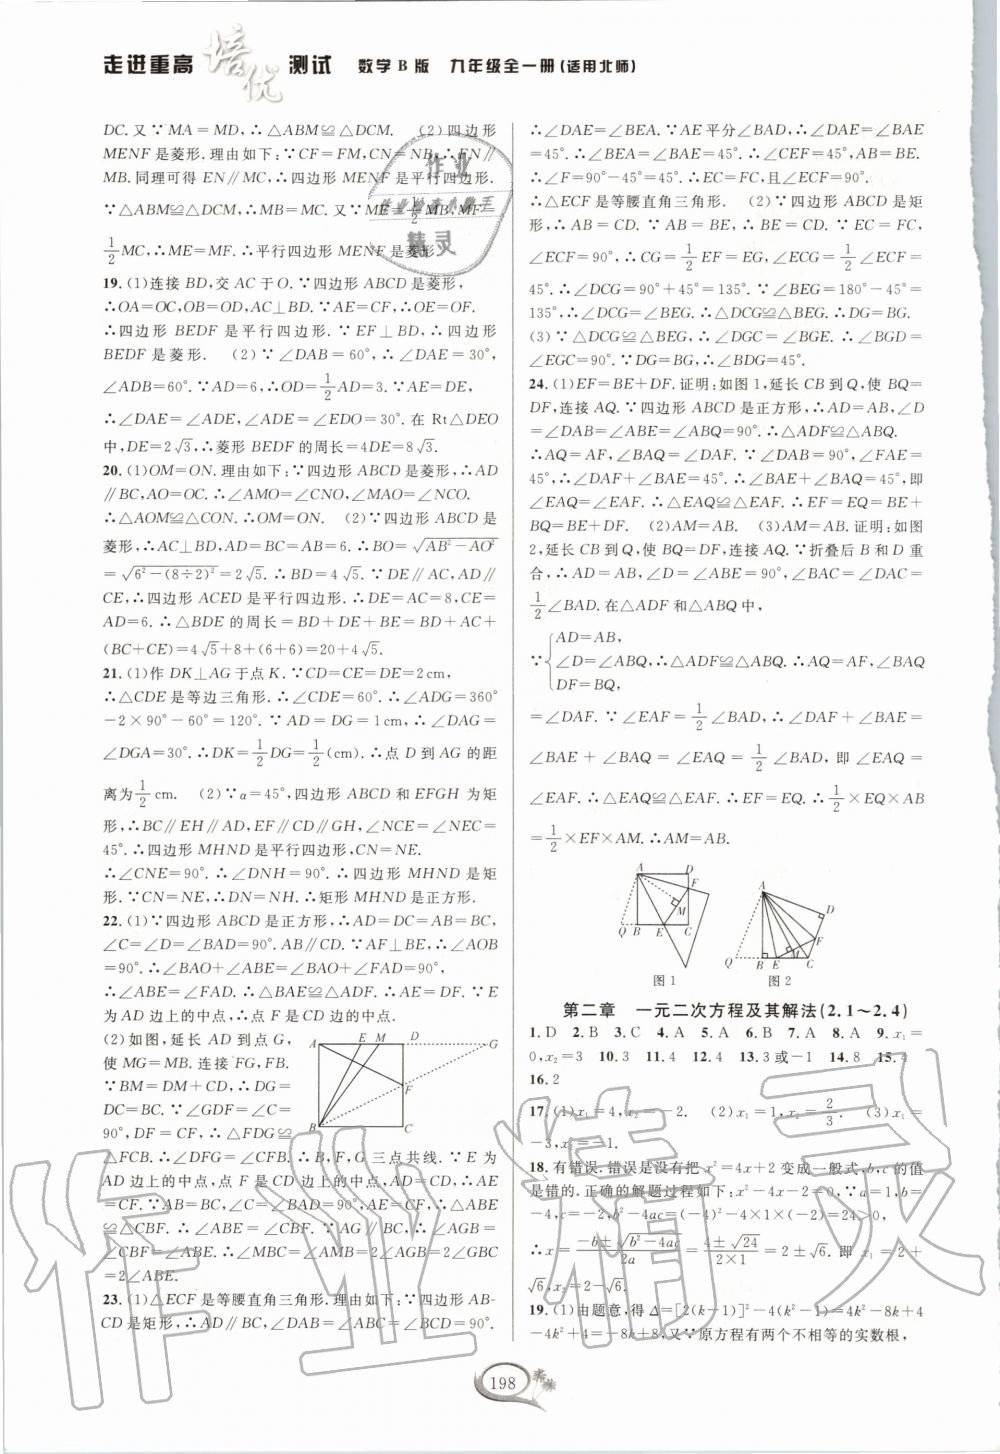 走进重高 培优 测试 数学 B 版 九年级全一册(适用北师)
DC. 又∵MA=MD,∴△ABM≌△DCM. (2)四边形
MENF是菱形.理由如下:∵CF=FM,CN=NB,∴FN∥
MB.同理可得EN∥MC,∴四边形MENF是平行四边形.
∵△ABM≌△DCM,∴MB=MC. 又∵ME=1/2MB,MF=
1/2MC,∴ME=MF. ∴平行四边形MENF是菱形.
19. (1)连接BD,交AC于O. ∵四边形ABCD是菱形,
∴OA=OC,OB=OD,AC⊥BD. ∵AE=CF,∴OE=OF.
∴四边形BEDF是平行四边形. ∵EF⊥BD,∴四边形
BEDF是菱形. (2)∵∠DAB=60°,∴∠DAE=30°,
∠ADB=60°. ∵AD=6,∴OD=1/2AD=3. ∵AE=DE,
∴∠DAE=∠ADE,∠ADE=∠EDO=30°. 在Rt△DEO
中,DE=2√3,∴菱形BEDF的周长=4DE=8√3.
20. (1)OM=ON.理由如下:∵四边形ABCD是菱形,∴AD
∥BC,AO=OC. ∴∠AMO=∠CNO,∠MAO=∠NCO.
∴△AOM≌△CON. ∴OM=ON. (2)∵四边形ABCD是
菱形,∴AC⊥BD,AD=BC=AB=6. ∴BO=√(AB²-AO²)
=√(6²-(8÷2)²)=2√5. ∴BD=4√5. ∵DE∥AC,AD∥
CE,∴四边形ACED是平行四边形. ∴DE=AC=8,CE=
AD=6. ∴△BDE的周长=BD+DE+BE=BD+AC+
(BC+CE)=4√5+8+(6+6)=20+4√5.
21. (1)作DK⊥AG于点K. ∵CD=CE=DE=2cm,
∴△CDE是等边三角形. ∴∠CDE=60°. ∴∠ADG=360°
-2×90°-60°=120°. ∵AD=DG=1cm,∴∠DAG=
∠DGA=30°. ∴DK=1/2DG=1/2(cm). ∴点D到AG的距
离为1/2cm. (2)∵α=45°,四边形ABCD和EFGH为矩
形,∴BC∥EH∥AD,EF∥CD∥GH,∠NCE=∠NEC=
45°. ∴四边形MHND是平行四边形,CN=NE.
∴∠CNE=90°. ∴∠DNH=90°. ∴四边形MHND是矩
形. ∵CN=NE,∴DN=NH. ∴矩形MHND是正方形.
22. (1)∵四边形ABCD是正方形,∴AD=DC=AB=BC,
∠C=∠D=∠BAD=90°. AB∥CD. ∵AF⊥BE,∴∠AOB
=90°. ∴∠BAO+∠ABE=∠BAO+∠DAF=90°.
∴∠ABE=∠DAF. ∴△BAE≌△ADF. ∴AE=DF. ∵E
为AD边上的中点,∴点F是CD边上的中点.
(2)如图,延长AD到点G,
使MG=MB. 连接FG,FB.
∵BM=DM+CD,∴DG=
DC=BC. ∵∠GDF=∠C=
90°,DF=CF,∴△FDG≌
△FCB. ∴∠DFG=∠CFB. ∴B,F,G三点共线. ∵E为
AD边上的中点,点F是CD边上的中点,AD=CD,∴AE
=CF. ∵AB=BC,∠C=∠BAD=90°,AE=CF,∴△ABE
≌△CBF. ∴∠ABE=∠CBF. ∵AG∥BC,∴∠AGB=
∠CBF=∠ABE. ∴∠MBC=∠AMB=2∠AGB=2∠GBC
=2∠ABE.
23. (1)△ECF是等腰直角三角形.证明如下:∵四边形AB-
CD是矩形,∴AD∥BC,∠ABC=∠ADC=∠BCD=90°.
A E M D G
F
B C
∴∠DAE=∠BEA. ∵AE平分∠BAD,∴∠DAE=∠BAE
=45°. ∴∠BEA=∠BAE=45°. ∴∠CEF=45°,AB=BE.
∴∠F=90°-45°=45°. ∴EC=FC,且∠ECF=90°.
∴△ECF是等腰直角三角形. (2)∵四边形ABCD是矩
形,∴AB=CD. ∵AB=BE,∴BE=CD. ∵EC=FC,
∠ECF=90°,∴CG=1/2EF=EG,∠ECG=1/2∠ECF=
45°. ∴∠DCG=90°+45°=135°. ∵∠BEG=180°-45°=
135°,∴∠DCG=∠BEG. ∴△DCG≌△BEG. ∴DG=BG.
(3)∵△DCG≌△BEG,∴∠DGC=∠BGE. ∴∠BGD
=∠EGC=90°. ∵DG=BG,∴∠BDG=45°.
24. (1)EF=BE+DF.证明:如图1,延长CB到Q,使BQ=
DF,连接AQ. ∵四边形ABCD是正方形,∴AD=AB,∠D
=∠DAB=∠ABE=∠ABQ=90°. ∴△ADF≌△ABQ.
∴AQ=AF,∠BAQ=∠DAF. ∵∠DAB=90°,∠FAE=
45°,∴∠DAF+∠BAE=45°. ∴∠BAQ+∠BAE=45°,即
∠EAQ=∠EAF. ∴△EAQ≌△EAF. ∴EF=EQ=BE+
BQ=BE+DF. (2)AM=AB. (3)AM=AB.证明:如图
2,延长CB到Q,使BQ=DF,连接AQ. ∵折叠后B和D重
合,∴AD=AB,∠D=∠ABE=90°,∠BAC=∠DAC=
1/2∠BAD. 在△ADF和△ABQ中,
AD=AB,
∵ ∠D=∠ABQ, ∴△ADF≌△ABQ. ∴AQ=AF,∠BAQ
DF=BQ,
=∠DAF. ∵∠EAF=1/2∠BAD,∴∠DAF+∠BAE=
∠BAE+∠BAQ=∠EAQ=1/2∠BAD,即∠EAQ=
∠EAF. ∴△EAQ≌△EAF. ∴EF=EQ. ∴1/2×EQ×AB
=1/2×EF×AM. ∴AM=AB.
A D F M Q B E C
图1
A D F M Q B E C
图2
第二章 一元二次方程及其解法(2.1~2.4)
1. D 2. B 3. C 4. A 5. A 6. B 7. A 8. A 9. x₁=
0,x₂=3 10. 3 11. 4 12. 4 13. 3或-1 14. 8 15. 4
16. 2
17. (1)x₁=4,x₂=-2. (2)x₁=1,x₂=2/3. (3)x₁=
-3,x₂=-1.
18. 有错误.错误是没有把x²=4x+2变成一般式,b,c的值
是错的.正确的解题过程如下:x²-4x-2=0,∵a=1,b=
-4,c=-2,∴b²-4ac=(-4)²-4×1×(-2)=24>0,
∴x=(-b±√(b²-4ac))/2a=(4±√24)/(2×1)=2±√6. 即x₁=2+
√6,x₂=2-√6.
19. (1)由题意,得Δ=[2(k-1)]²-4(k²-1)=4k²-8k+4
-4k²+4=-8k+8,又∵原方程有两个不相等的实数根,
198
作业
作业检查小助手
精灵
作业精灵